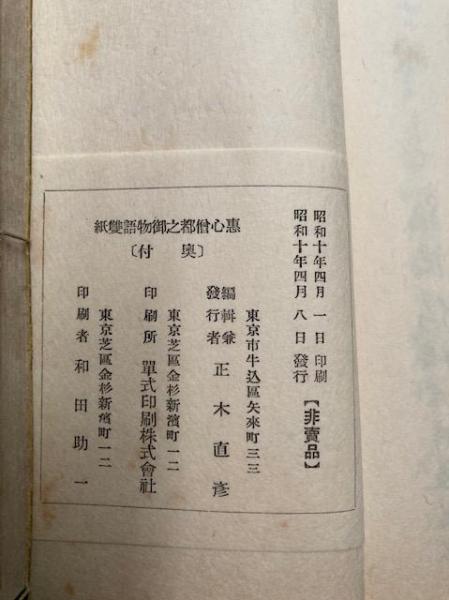 昭和十年四月一日印刷
昭和十年四月八日發行
【非賣品】
惠心僧都之御物語雙紙
〔奧付〕
東京市牛込區矢來町三三
編輯兼發行者 正木直彥
東京芝區金杉新濱町一二
印刷所 單式印刷株式會社
東京芝區金杉新濱町一二
印刷者 和田助一